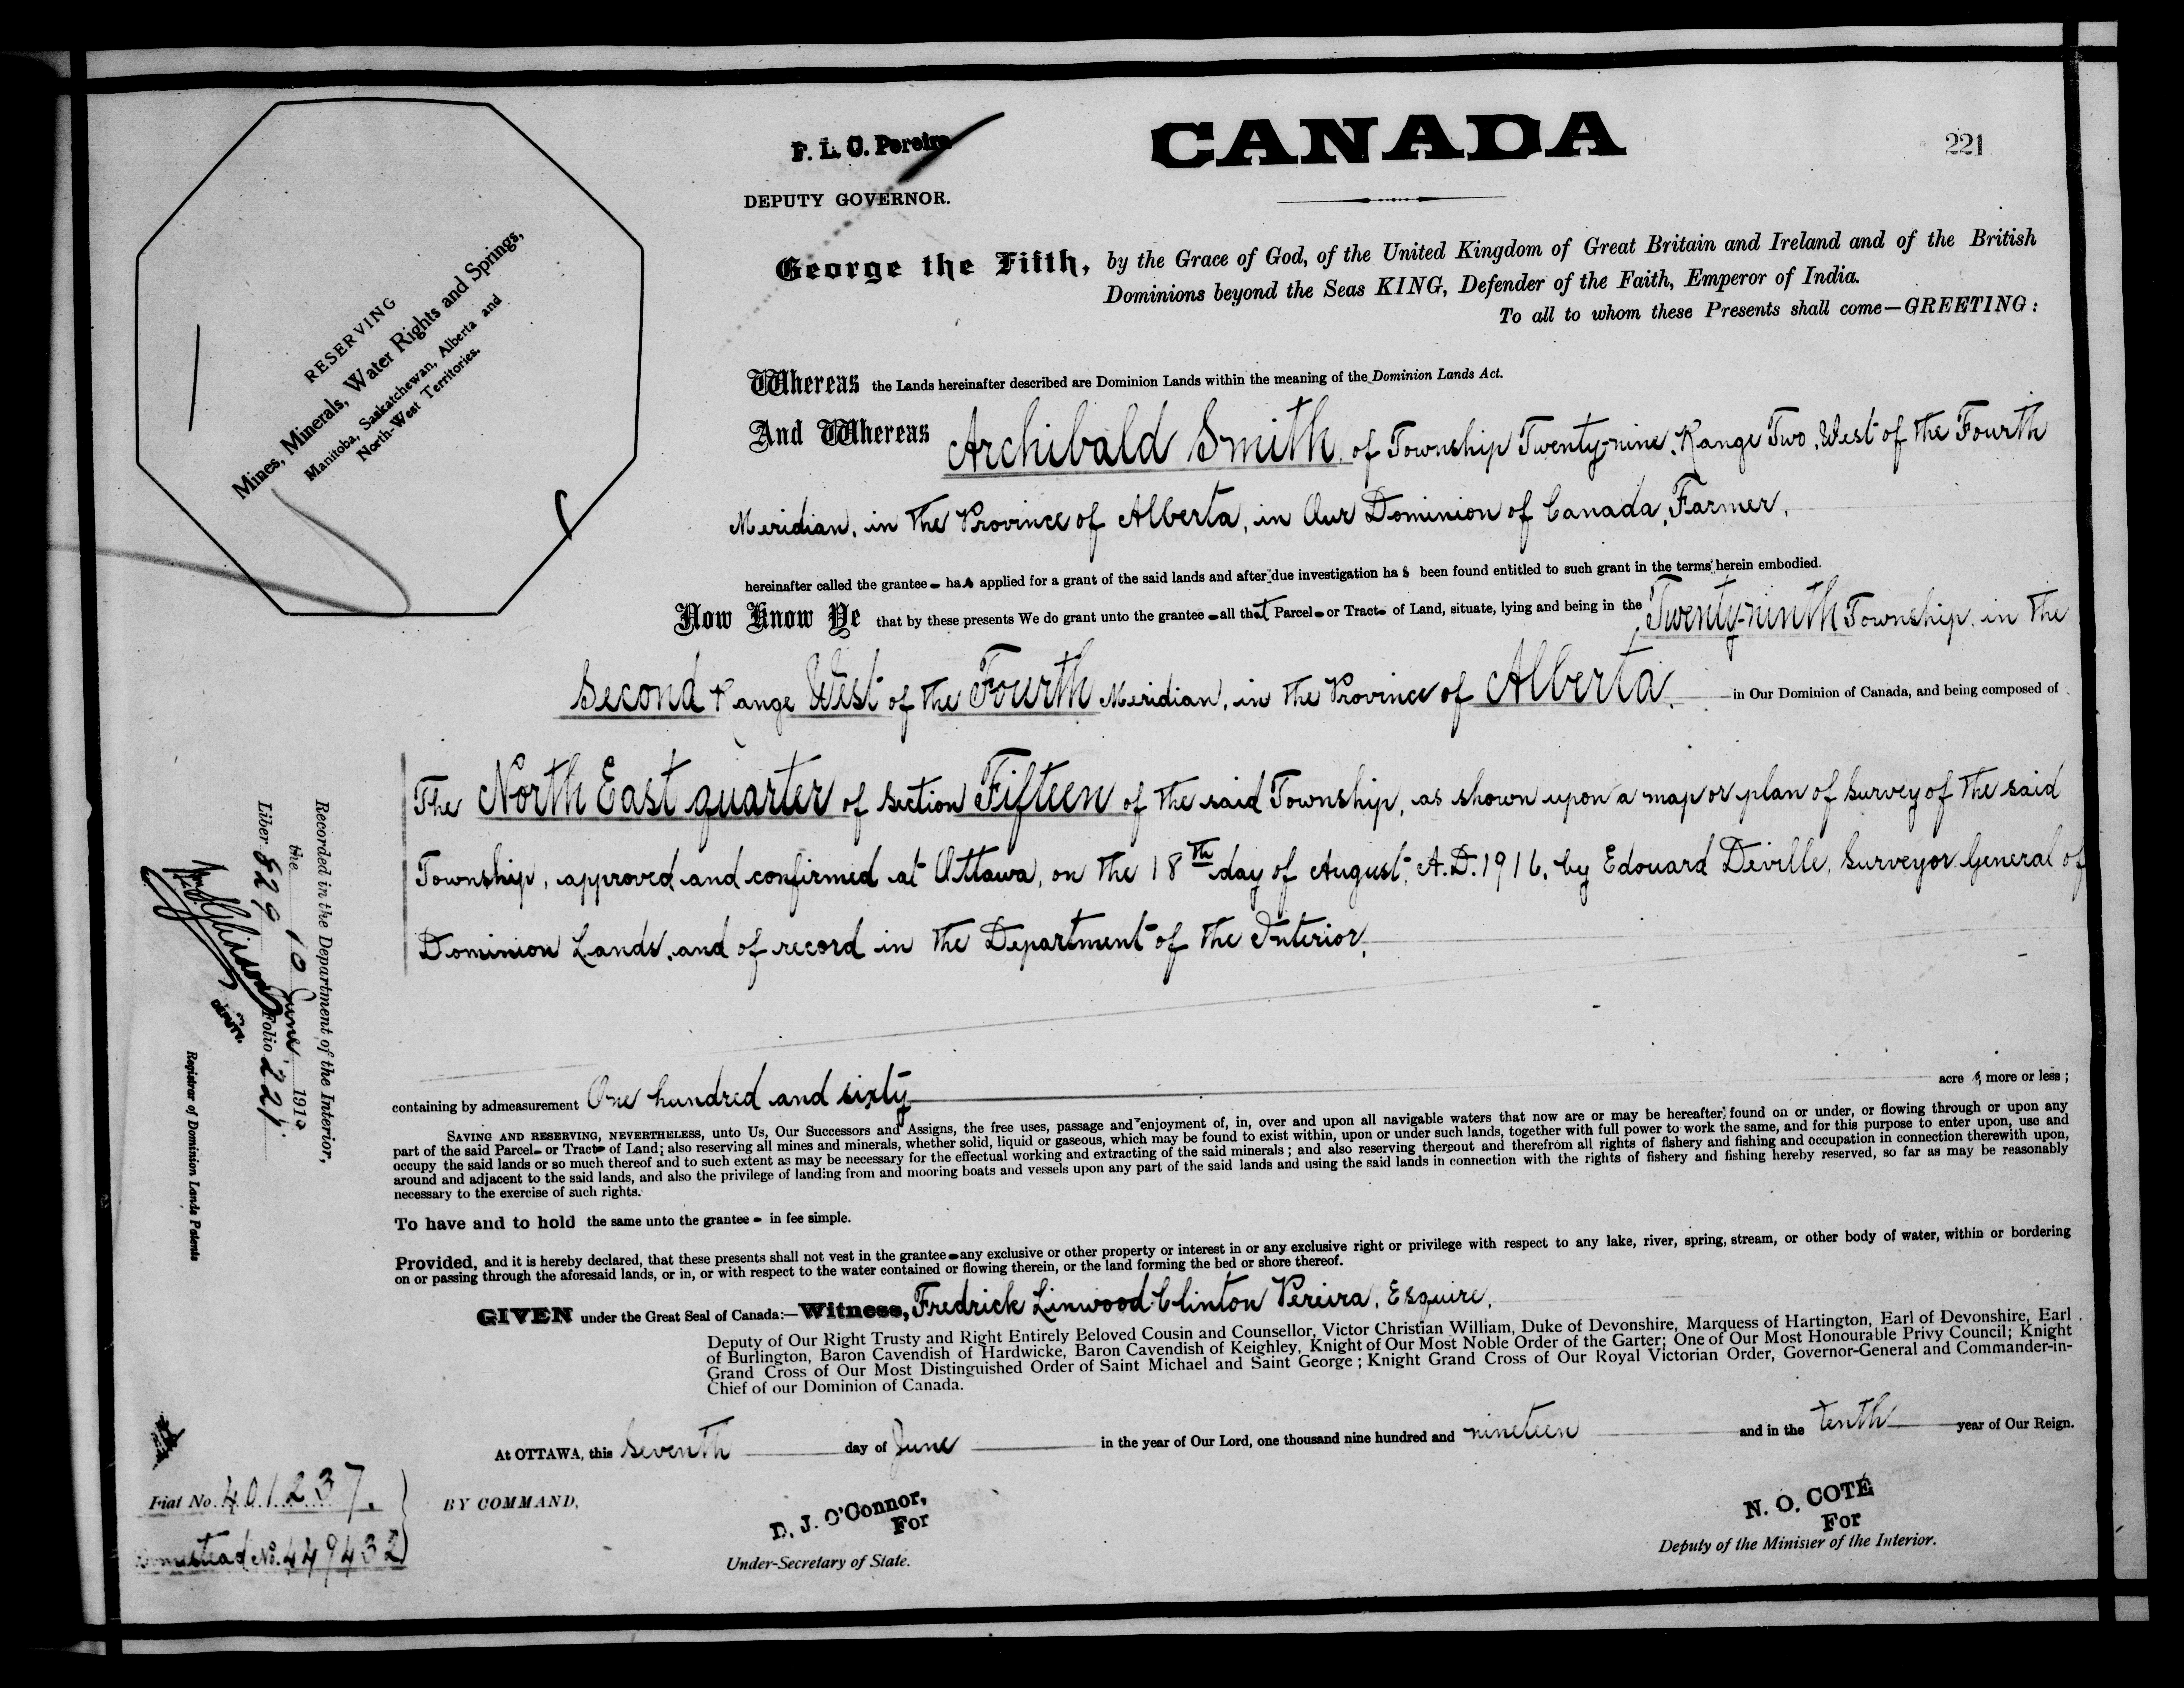 F. L. C. Pereira
DEPUTY GOVERNOR.
CANADA
221
George the Fifth, by the Grace of God, of the United Kingdom of Great Britain and Ireland and of the British
Dominions beyond the Seas KING, Defender of the Faith, Emperor of India.
To all to whom these Presents shall come—GREETING:
RESERVING
Mines, Minerals, Water Rights and Springs,
Manitoba, Saskatchewan, Alberta and
North-West Territories.
Whereas the Lands hereinafter described are Dominion Lands within the meaning of the Dominion Lands Act.
And Whereas Archibald Smith, of Township Twenty-nine, Range Two, West of the Fourth
Meridian, in the Province of Alberta, in Our Dominion of Canada, Farmer,
hereinafter called the grantee - has applied for a grant of the said lands and after due investigation has been found entitled to such grant in the terms herein embodied.
Now Know Ye that by these presents We do grant unto the grantee - all that Parcel - or Tract - of Land, situate, lying and being in the Twenty-ninth Township, in the
Second Range West of the Fourth Meridian, in the Province of Alberta, in Our Dominion of Canada, and being composed of
The North East quarter of Section Fifteen of the said Township, as shown upon a map or plan of survey of the said
Township, approved and confirmed at Ottawa, on the 18th day of August, A.D. 1916, by Edouard Deville, Surveyor General of
Dominion Lands, and of record in the Department of the Interior,
containing by admeasurement One hundred and sixty acres, more or less;
SAVING AND RESERVING, NEVERTHELESS, unto Us, Our Successors and Assigns, the free uses, passage and enjoyment of, in, over and upon all navigable waters that now are or may be hereafter found on or under, or flowing through or upon any
part of the said Parcel - or Tract - of Land; also reserving all mines and minerals, whether solid, liquid or gaseous, which may be found to exist within, upon or under such lands, together with full power to work the same, and for this purpose to enter upon, use and
occupy the said lands or so much thereof and to such extent as may be necessary for the effectual working and extracting of the said minerals; and also reserving thereout and therefrom all rights of fishery and fishing and occupation in connection therewith upon,
around and adjacent to the said lands, and also the privilege of landing from and mooring boats and vessels upon any part of the said lands and using the said lands in connection with the rights of fishery and fishing hereby reserved, so far as may be reasonably
necessary to the exercise of such rights.
To have and to hold the same unto the grantee - in fee simple.
Provided, and it is hereby declared, that these presents shall not vest in the grantee - any exclusive or other property or interest in or any exclusive right or privilege with respect to any lake, river, spring, stream, or other body of water, within or bordering
on or passing through the aforesaid lands, or in, or with respect to the water contained or flowing therein, or the land forming the bed or shore thereof.
GIVEN under the Great Seal of Canada:—Witness, Fredrick Linwood Clinton Pereira, Esquire,
Deputy of Our Right Trusty and Right Entirely Beloved Cousin and Counsellor, Victor Christian William, Duke of Devonshire, Marquess of Hartington, Earl of Devonshire, Earl
of Burlington, Baron Cavendish of Hardwicke, Baron Cavendish of Keighley, Knight of Our Most Noble Order of the Garter; One of Our Most Honourable Privy Council; Knight
Grand Cross of Our Most Distinguished Order of Saint Michael and Saint George; Knight Grand Cross of Our Royal Victorian Order, Governor-General and Commander-in-
Chief of our Dominion of Canada.
At OTTAWA, this Seventh day of June in the year of Our Lord, one thousand nine hundred and nineteen and in the tenth year of Our Reign.
BY COMMAND,
D. J. O'Connor,
For
Under-Secretary of State.
N. O. COTÉ
For
Deputy of the Minister of the Interior.
Recorded in the Department of the Interior,
the 10 June 1919
Liber 829 Folio 221.
DEPUTY
Registrar of Dominion Lands Patents
Fiat No. 401237.
Homestead No. 449432